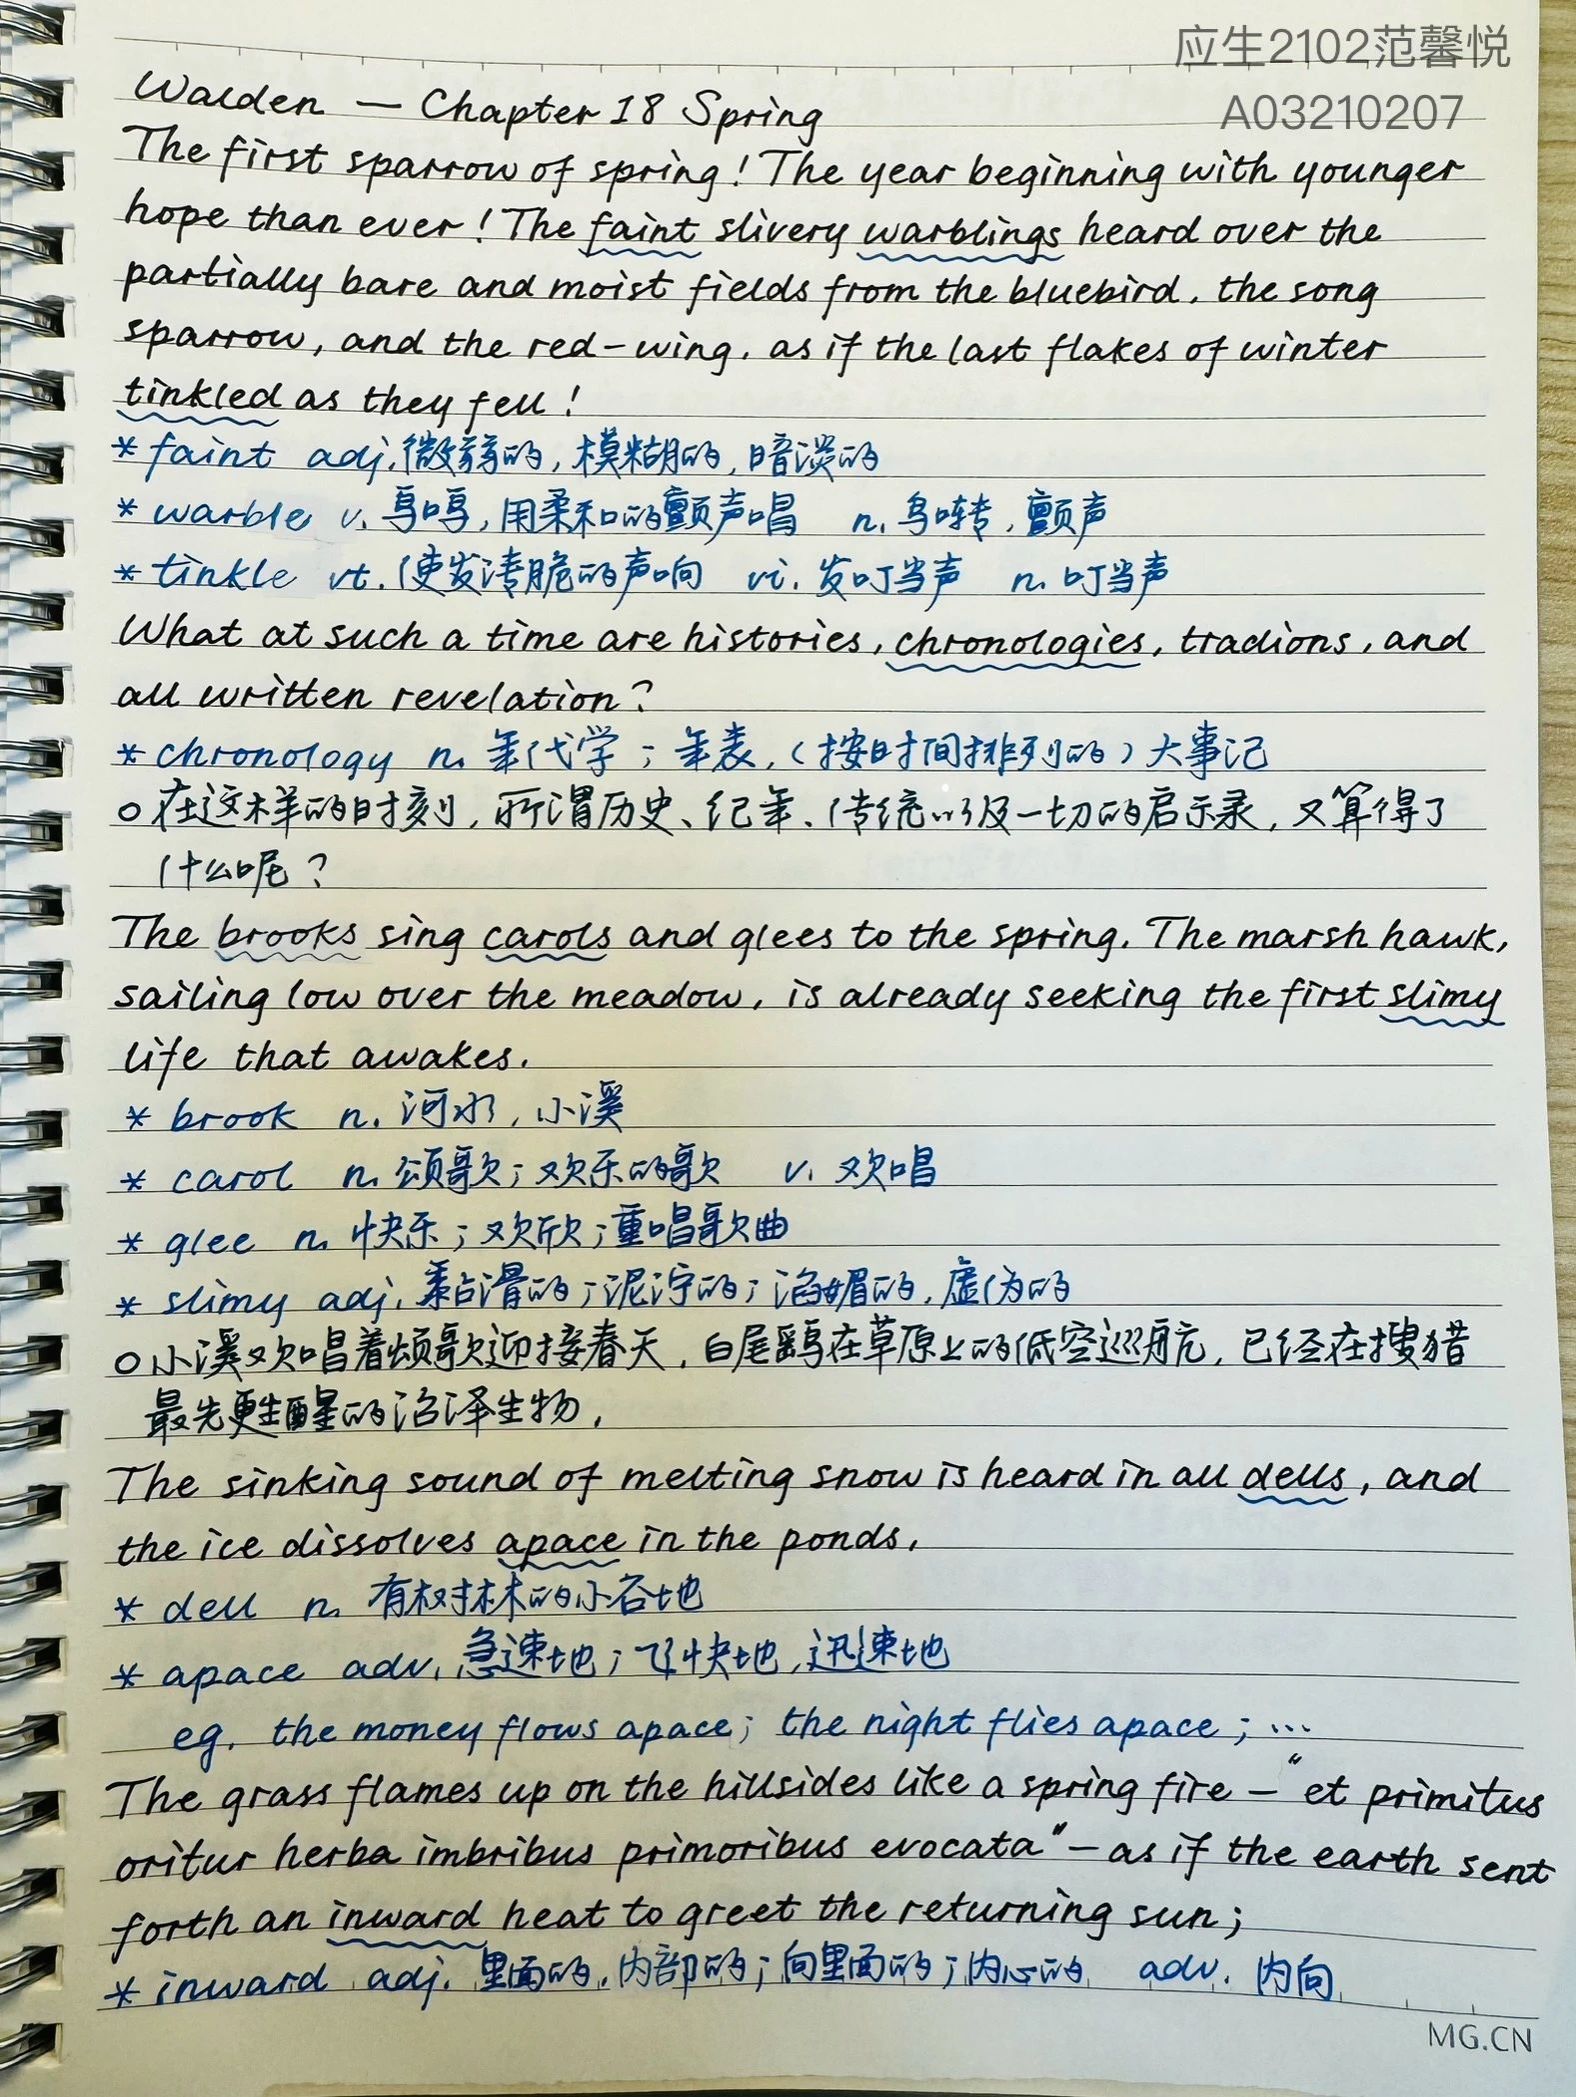 应生2102范馨悦
A03210207
Walden — Chapter 18 Spring
The first sparrow of spring! The year beginning with younger
hope than ever! The faint slivery warblings heard over the
partially bare and moist fields from the bluebird, the song
sparrow, and the red-wing, as if the last flakes of winter
tinkled as they fell!
* faint adj. 微弱的, 模糊的, 暗淡的
* warble v. 鸟鸣, 用柔和的颤声唱 n. 鸟啭, 颤声
* tinkle vt. 使发清脆的声响 vi. 发叮当声 n. 叮当声
What at such a time are histories, chronologies, tradions, and
all written revelation?
* chronology n. 年代学; 年表, (按时间排列的) 大事记
○ 在这样的时刻, 所谓历史、纪年、传统以及一切的启示录, 又算得了
什么呢?
The brooks sing carols and glees to the spring. The marsh hawk,
sailing low over the meadow, is already seeking the first slimy
life that awakes.
* brook n. 河水, 小溪
* carol n. 颂歌; 欢乐的歌 v. 欢唱
* glee n. 快乐; 欢欣; 重唱歌曲
* slimy adj. 黏滑的; 泥泞的; 谄媚的, 虚伪的
○ 小溪欢唱着颂歌迎接春天, 白尾鹞在草原上的低空巡航, 已经在搜猎
最先甦醒的沼泽生物.
The sinking sound of melting snow is heard in all dells, and
the ice dissolves apace in the ponds.
* dell n. 有树林的小谷地
* apace adv. 急速地; 飞快地, 迅速地
eg. the money flows apace; the night flies apace; ...
The grass flames up on the hillsides like a spring fire — "et primitus
oritur herba imbribus primoribus evocata" — as if the earth sent
forth an inward heat to greet the returning sun;
* inward adj. 里面的, 内部的; 向里面的; 内心的 adv. 内向
MG.CN